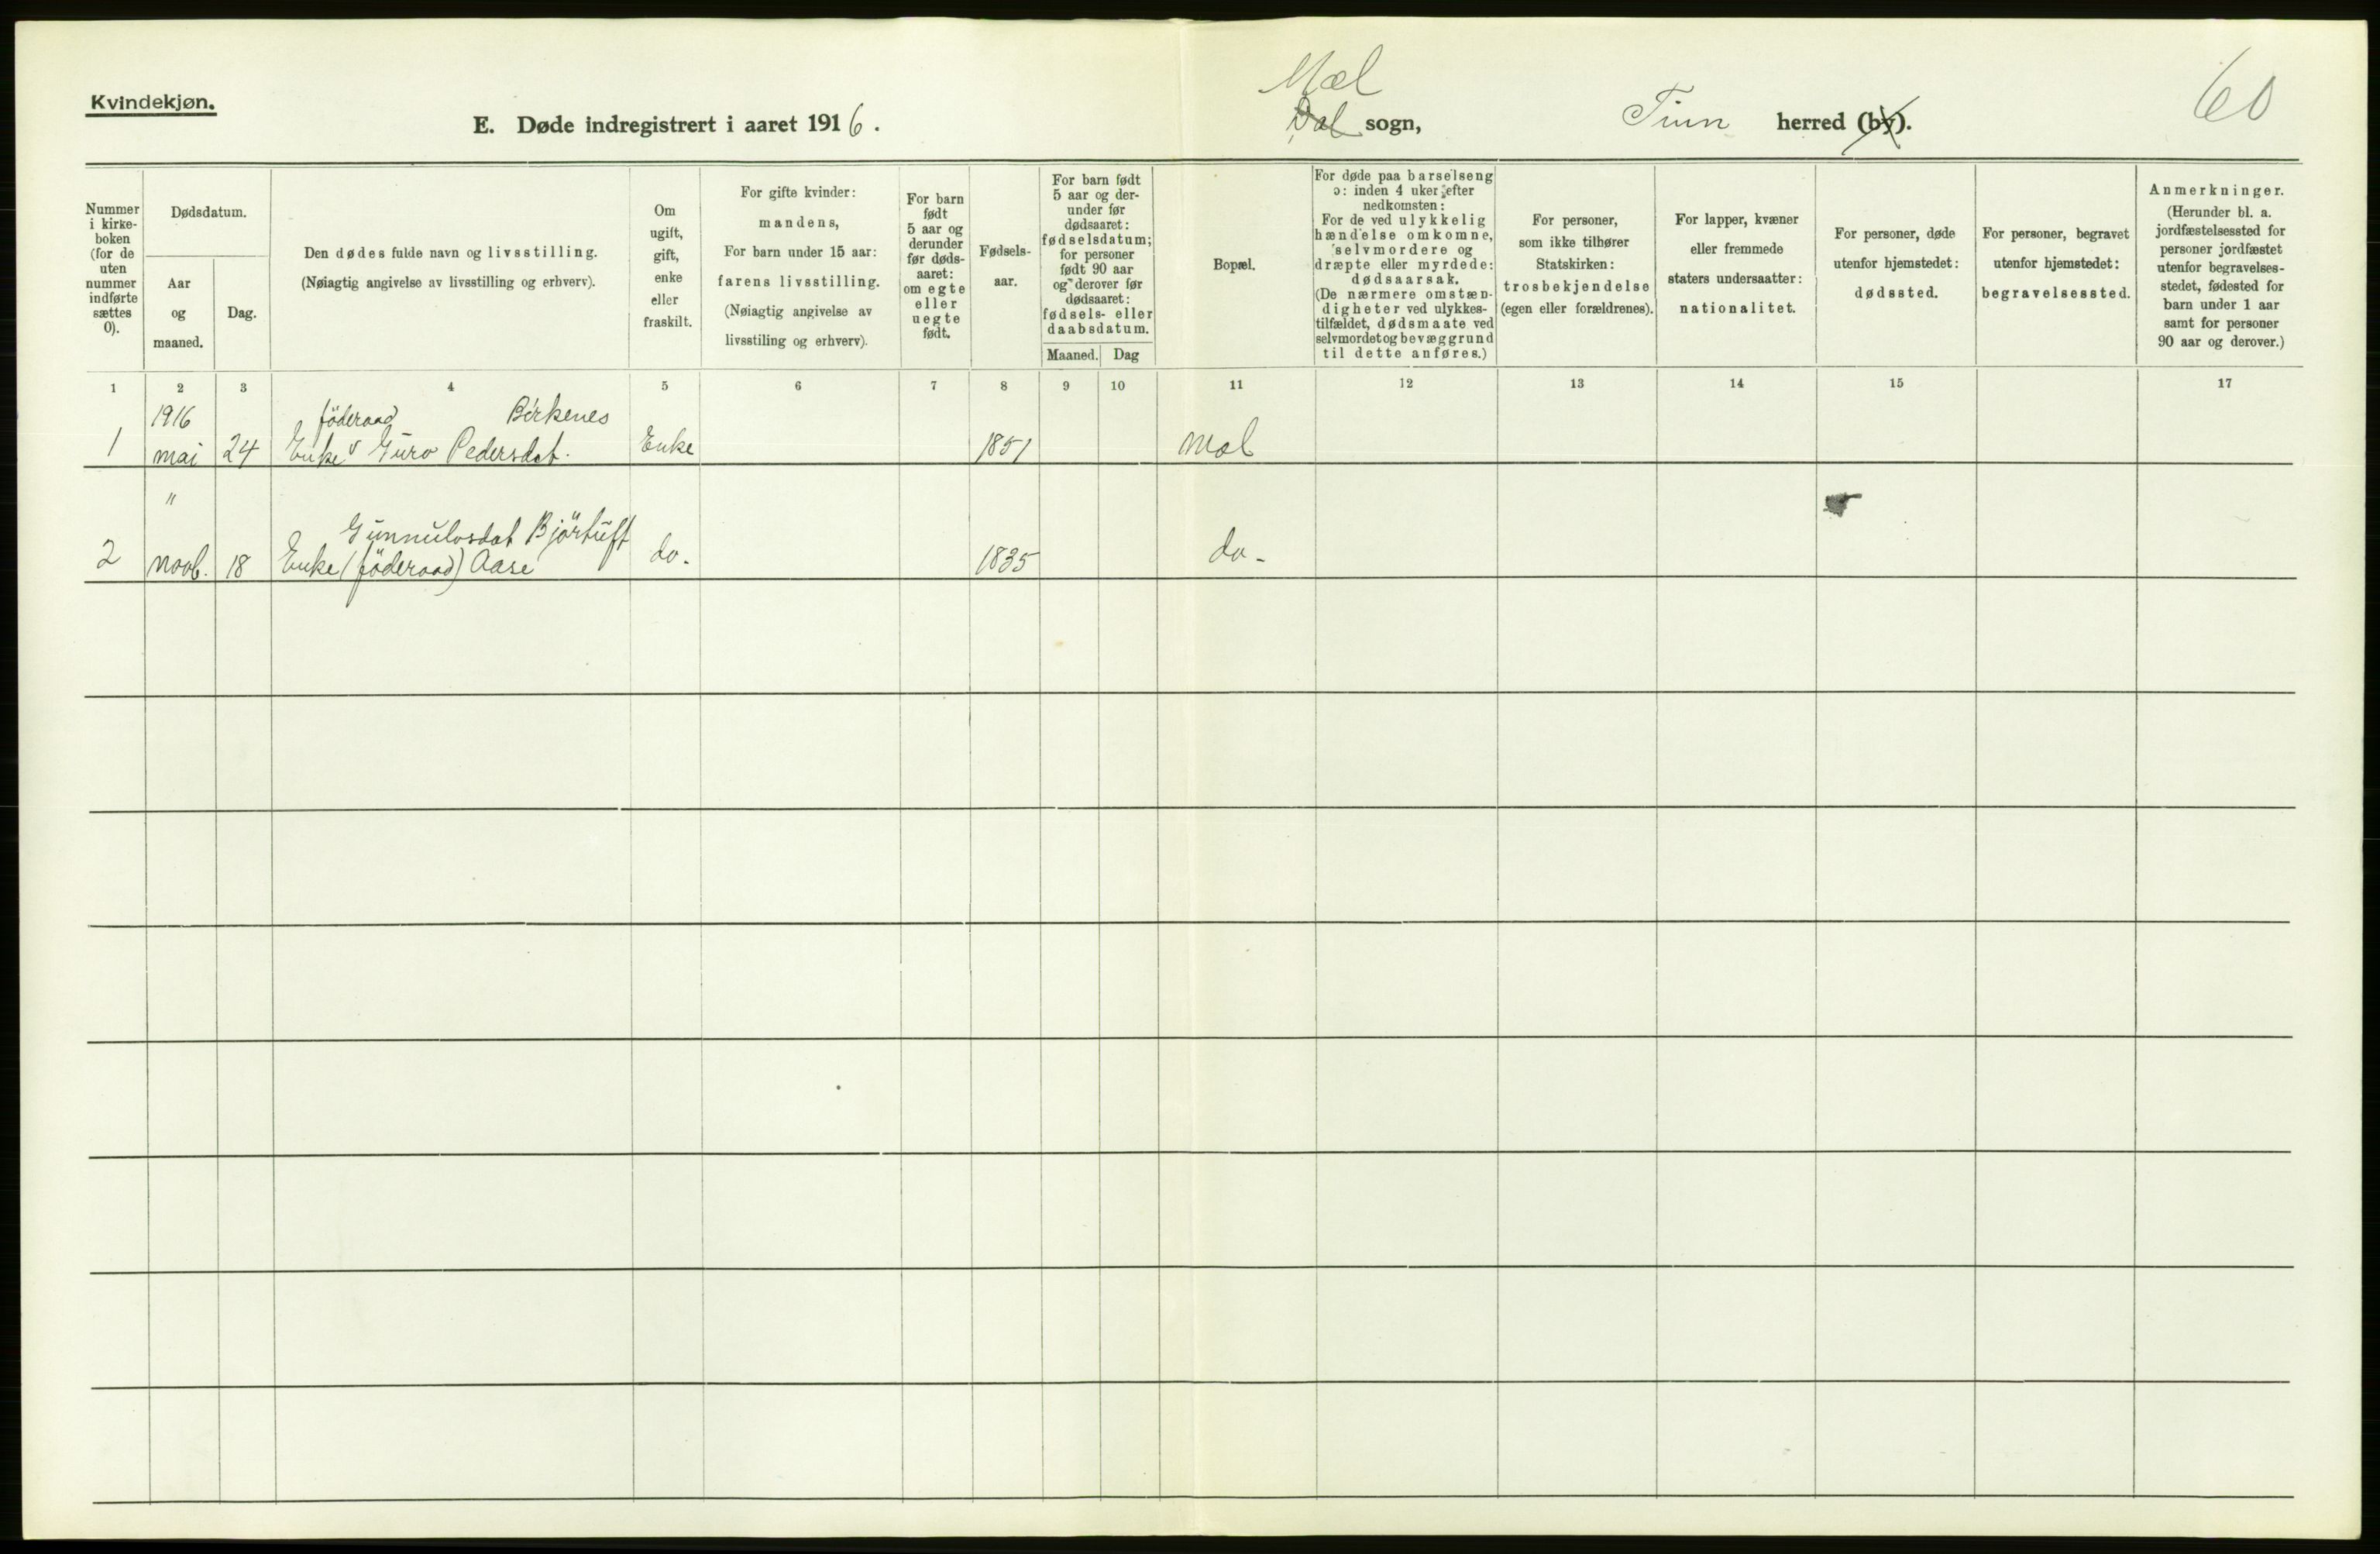 Kvindekjøn.
E. Døde indregistrert i aaret 1916.
Mæl
Dal sogn,
Tinn herred (by).
60
Nummer i kirke- boken (for de uten nummer indførte sættes 0).
Dødsdatum.
Aar og maaned.
Dag.
Den dødes fulde navn og livsstilling.
(Nøiagtig angivelse av livsstilling og erhverv).
Om ugift, gift, enke eller fraskilt.
For gifte kvinder:
mandens,
For barn under 15 aar:
farens livsstilling.
(Nøiagtig angivelse av
livsstiling og erhverv).
For barn født 5 aar og derunder før døds- aaret: om egte eller uegte født.
Fødsels- aar.
For barn født 5 aar og der- under før dødsaaret: fødselsdatum; for personer født 90 aar og derover før dødsaaret: fødsels- eller daabsdatum.
Maaned. Dag
Bopæl.
For døde paa barselseng
ɔ: inden 4 uker efter
nedkomsten:
For de ved ulykkelig
hændelse omkomne,
selvmordere og
dræpte eller myrdede:
dødsaarsak.
(De nærmere omstæn-
digheter ved ulykkes-
tilfældet, dødsmaate ved
selvmordet og bevæggrund
til dette anføres.)
For personer,
som ikke tilhører
Statskirken:
trosbekjendelse
(egen eller forældrenes).
For lapper, kvæner
eller fremmede
staters undersaatter:
nationalitet.
For personer, døde
utenfor hjemstedet:
dødssted.
For personer, begravet
utenfor hjemstedet:
begravelsessted.
Anmerkninger.
(Herunder bl. a.
jordfæstelsessted for
personer jordfæstet
utenfor begravelses-
stedet, fødested for
barn under 1 aar
samt for personer
90 aar og derover.)
1 2 3 4 5 6 7 8 9 10 11 12 13 14 15 17
1916 föderaad Birkenes
1 mai 24 Enke v Guro Pedersdat. Enke 1851 Mæl
" Gunnulvsdat Björtuft
2 novb. 18 Enke (föderaad) Aase do. 1835 do-